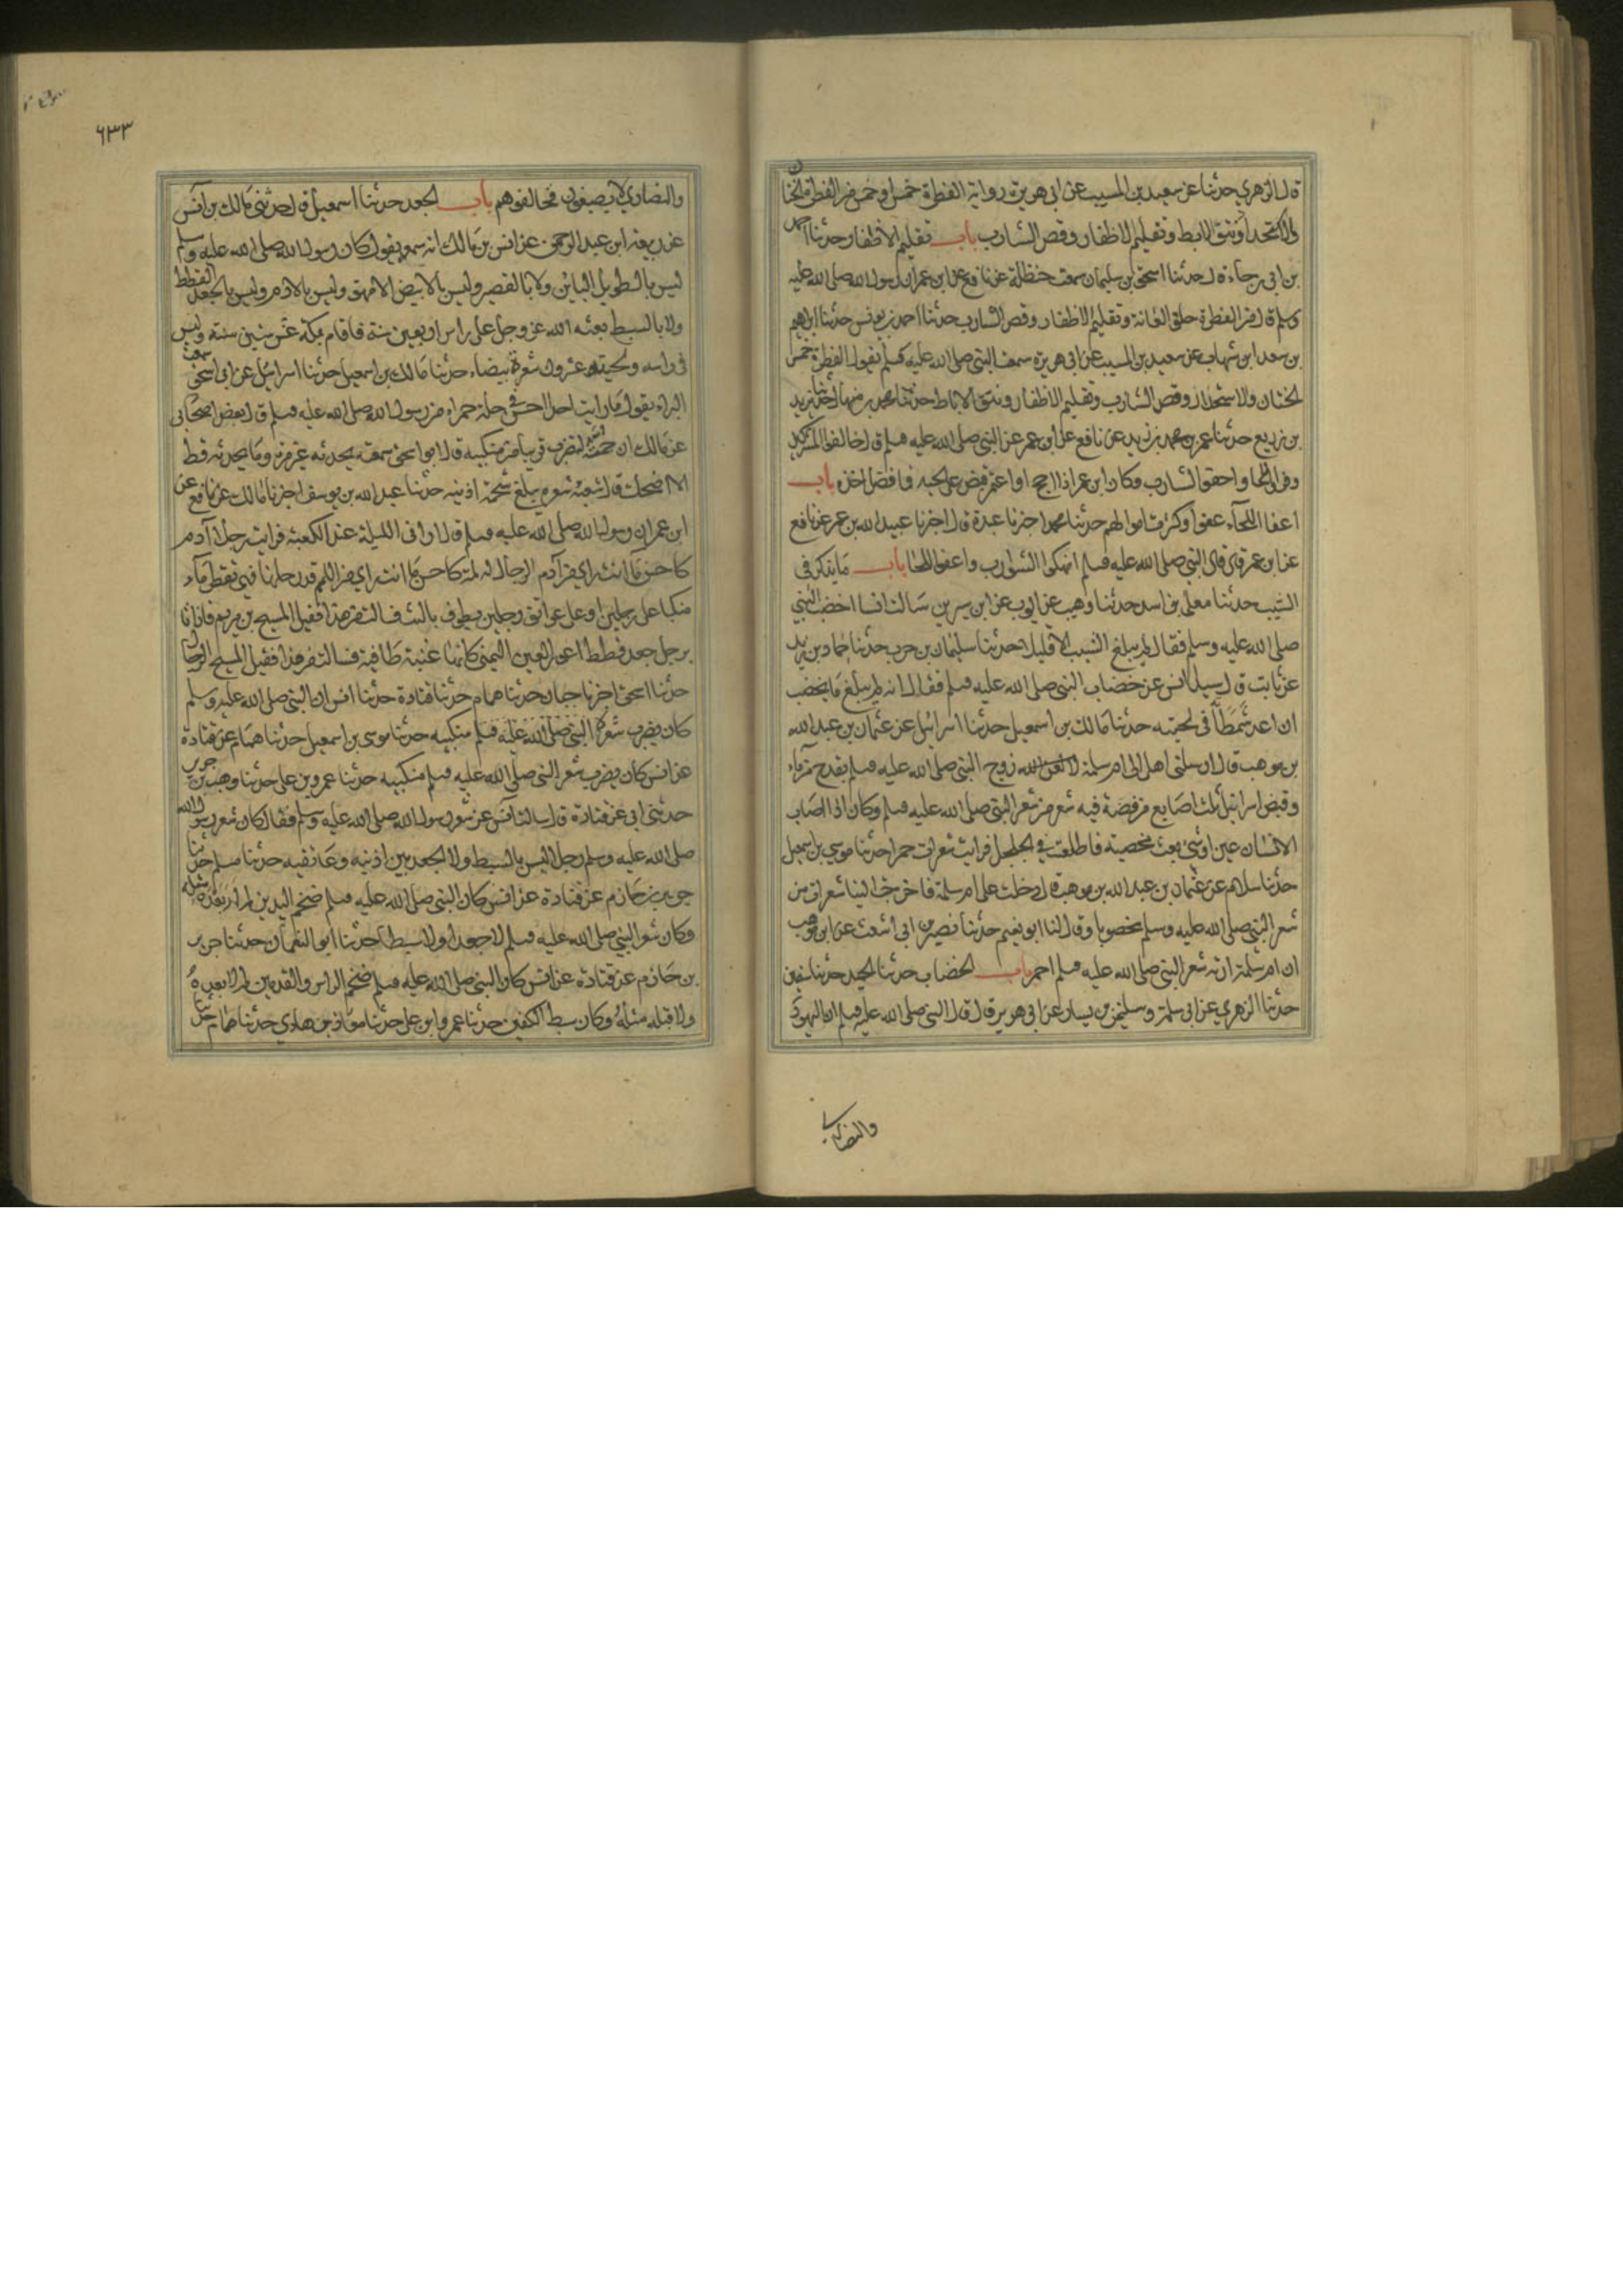 قال الزهري حدثنا عن سعيد بن المسيب عن ابي هريرة رواية الفطرة خمس او خمس من الفطرة الختان
والاستحداد ونتف الابط وتقليم الاظفار وقص الشارب باب تقليم الاظفار حدثنا احمد
بن ابي رجاء قال حدثنا اسحق بن سليمان سمعت حنظلة عن نافع عن ابن عمر ان رسول الله صلى الله عليه
وسلم قال من الفطرة حلق العانة وتقليم الاظفار وقص الشارب حدثنا احمد بن يونس حدثنا ابراهيم
بن سعد ابن شهاب عن سعيد بن المسيب عن ابي هريرة سمعت النبي صلى الله عليه وسلم يقول الفطرة خمس
الختان والاستحداد وقص الشارب وتقليم الاظفار ونتف الاباط حدثنا محمد بن منهال حدثنا يزيد
بن زريع حدثنا عمر بن محمد بن زيد عن نافع عن ابن عمر عن النبي صلى الله عليه وسلم قال خالفوا المشركين
وفروا اللحا واحفوا الشارب وكان ابن عمر اذا حج او اعتمر قبض على لحيته فما فضل اخذه باب
اعفا اللحآء عفوا وكثرت اموالهم حدثنا محمد اخبرنا عبدة قال اخبرنا عبيد الله بن عمر عن نافع
عن ابن عمر قال قال النبي صلى الله عليه وسلم انهكوا الشوارب واعفوا اللحا باب ما يذكر في
الشيب حدثنا معلى بن اسد حدثنا وهيب عن ايوب عن ابن سيرين سالت انسا اخضب النبي
صلى الله عليه وسلم فقال لم يبلغ الشيب الا قليلا حدثنا سليمان بن حرب حدثنا حماد بن زيد
عن ثابت قال سيل انس عن خضاب النبي صلى الله عليه وسلم فقال انه لم يبلغ ما يخضب
ان اعد شمطاته في لحيته حدثنا مالك بن اسمعيل حدثنا اسرائيل عن عثمان بن عبد الله
بن موهب قال ارسلني اهلي الى ام سلمة زوج النبي صلى الله عليه وسلم بقدح من ماء
وقبض اسرائيل ثلث اصابع من فضة فيه شعر من شعر النبي صلى الله عليه وسلم وكان اذا اصاب
الانسان عين او شئ بعث مخضبة فاطلعت في الجلجل فرايت شعرات حمرا حدثنا موسى بن اسمعيل
حدثنا سلام عن عثمان بن عبد الله بن موهب قال دخلت على ام سلمة فاخرجت الينا شعرا من
شعر النبي صلى الله عليه وسلم مخضوبا وقال لنا ابو نعيم حدثنا نصير بن ابي اشعث عن ابن موهب
ان ام سلمة ارته شعر النبي صلى الله عليه وسلم احمر باب الخضاب حدثنا الحميد حدثنا سفين
حدثنا الزهري عن ابي سلمة وسليمن بن يسار عن ابي هريرة قال قال النبي صلى الله عليه وسلم ان اليهود
والنصارى
٦٣٣
والنصارى لا يصبغون فخالفوهم باب الجعد حدثنا اسمعيل قال حدثني مالك بن انس
عن ربيعة ابن عبد الرحمن عن انس بن مالك انه سمعه يقول كان رسول الله صلى الله عليه وسلم
ليس بالطويل البائن ولا بالقصير وليس بالابيض الامهق وليس بالادم وليس بالجعد القطط
ولا بالسبط بعثه الله عز وجل على راس اربعين سنة فاقام بمكة عشر سنين سنة وليس
في راسه ولحيته عشرون شعرة بيضاء حدثنا مالك بن اسمعيل حدثنا اسرائيل عن ابي اسحق سمعت
البراء يقول ما رايت احدا احسن في حلة حمراء من رسول الله صلى الله عليه وسلم قال بعض اصحابي
عن مالك ان جمته لتضرب قريبا من منكبيه قال ابو اسحق سمعته يحدثه غير مرة وما يحدثه قط
الا اضحك قال شعبة شعره يبلغ شحمة اذنيه حدثنا عبد الله بن يوسف اخبرنا مالك عن نافع عن
ابن عمر ان رسول الله صلى الله عليه وسلم قال اراني الليلة عند الكعبة فرايت رجلا آدم
كاحسن ما انت راي من آدم الرجال له لمة كاحسن ما انت راي من اللمم قد رجلها فهي تقطر مآء
متكيا على رجلين او على عواتق رجلين يطوف بالبيت فسالت من هذا فقيل المسيح بن مريم فاذا انا
برجل جعد قطط اعور العين اليمنى كانها عنبة طافية فسالت من هذا فقيل المسيح الدجال
حدثنا اسحق اخبرنا حبان حدثنا همام حدثنا قتادة حدثنا انس ان النبي صلى الله عليه وسلم
كان يضرب شعره النبي صلى الله عليه وسلم منكبيه حدثنا موسى بن اسمعيل حدثنا همام عن قتادة
عن انس كان يضرب شعر النبي صلى الله عليه وسلم منكبيه حدثنا عمرو بن علي حدثنا وهب بن جرير
حدثني ابي عن قتادة قال سالت انس عن شعر رسول الله صلى الله عليه وسلم فقال كان شعر رسول الله
صلى الله عليه وسلم رجلا ليس بالسبط ولا الجعد بين اذنيه وعاتقيه حدثنا مسلم حدثنا
جرير بن حازم عن قتادة عن انس كان النبي صلى الله عليه وسلم ضخم اليدين لم ار بعده مثله
وكان شعر النبي صلى الله عليه وسلم لا جعدا ولا سبطا حدثنا ابو النعمان حدثنا جرير
بن حازم عن قتادة عن انس كان النبي صلى الله عليه وسلم ضخم الراس والقدمين لم ار بعده
ولا قبله مثله وكان سبط الكفين حدثنا عمرو ابن علي حدثنا معاذ بن هاني حدثنا همام حدثنا